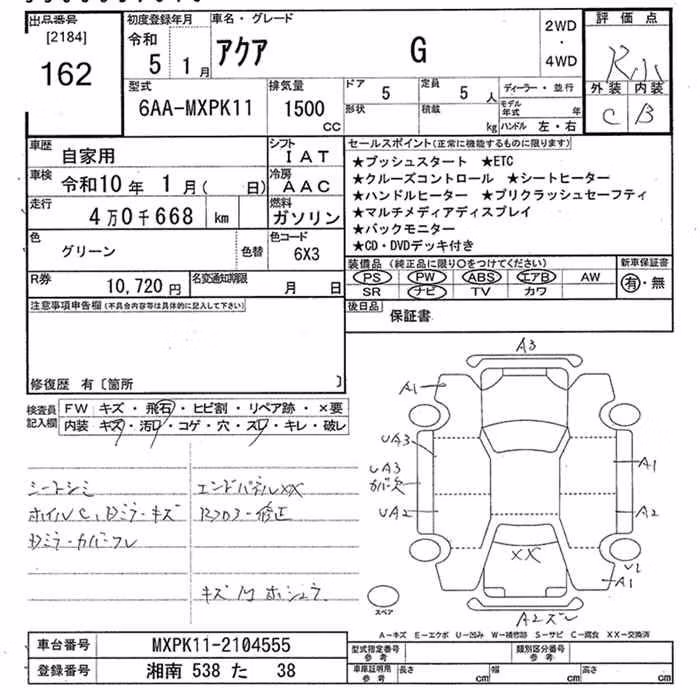 出品番号
[2184]
162
初度登録年月
令和
5 1月
車名・グレード
アクア G
2WD
・
4WD
評価点
R
外装 内装
C B
型式
6AA-MXPK11
排気量
1500
CC
ドア 5
定員 5 人
形状
積載 kg
ディーラー・並行
モデル年式 年
ハンドル 左・右
車歴
自家用
シフト
IAT
車検
令和10年 1月( 日)
冷房
AAC
走行
4万0千668 km
燃料
ガソリン
色
グリーン
色替
色コード
6X3
R券
10,720円
名変通知期限
月 日
セールスポイント(正常に機能するものに限ります)
★プッシュスタート ★ETC
★クルーズコントロール ★シートヒーター
★ハンドルヒーター ★プリクラッシュセーフティ
★マルチメディアディスプレイ
★バックモニター
★CD・DVDデッキ付き
装備品(純正品に限り○をつけてください)
PS PW ABS エアB AW
SR ナビ TV カワ
新車保証書
有・無
後日品
保証書
注意事項申告欄(不具合内容等は具体的に記入して下さい)
修復歴 有〔箇所 〕
検査員記入欄
FW キズ・飛石・ヒビ割・リペア跡・×要
内装 キズ・汚れ・コゲ・穴・スレ・キレ・破レ
シートシミ
ホイルC、Dミラーキズ
Dミラーカバーフレ
エンドパネルXX
Rフロアー修正
キズ
A3
A1
UA3
UA3
カバー欠
UA2
A1
A2
U1
A1
XX
A2ズレ
スペア
A-キズ E-エクボ U-凹み W-補修跡 S-サビ C-腐食 XX-交換済
車台番号
MXPK11-2104555
登録番号
湘南 538 た 38
型式指定番号
参考
類別区分番号
参考
車庫証明用
参考
長さ cm
幅 cm
高さ cm